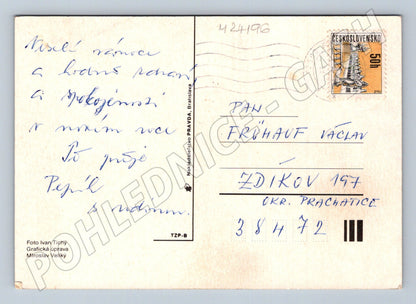 424196
ČESKOSLOVENSKO
50h
Veselé vánoce
a hodně zdraví
a spokojenosti
v novém roce
To přeje
Pepík
s rodinou
Nakladatelstvo PRAVDA, Bratislava
TZP-B
PAN
FRÜHAUF VÁCLAV
ZDÍKOV 197
OKR. PRACHATICE
38472
Foto Ivan Tichý
Grafická úprava
Miroslav Velský
POHLEDNICE-GASH